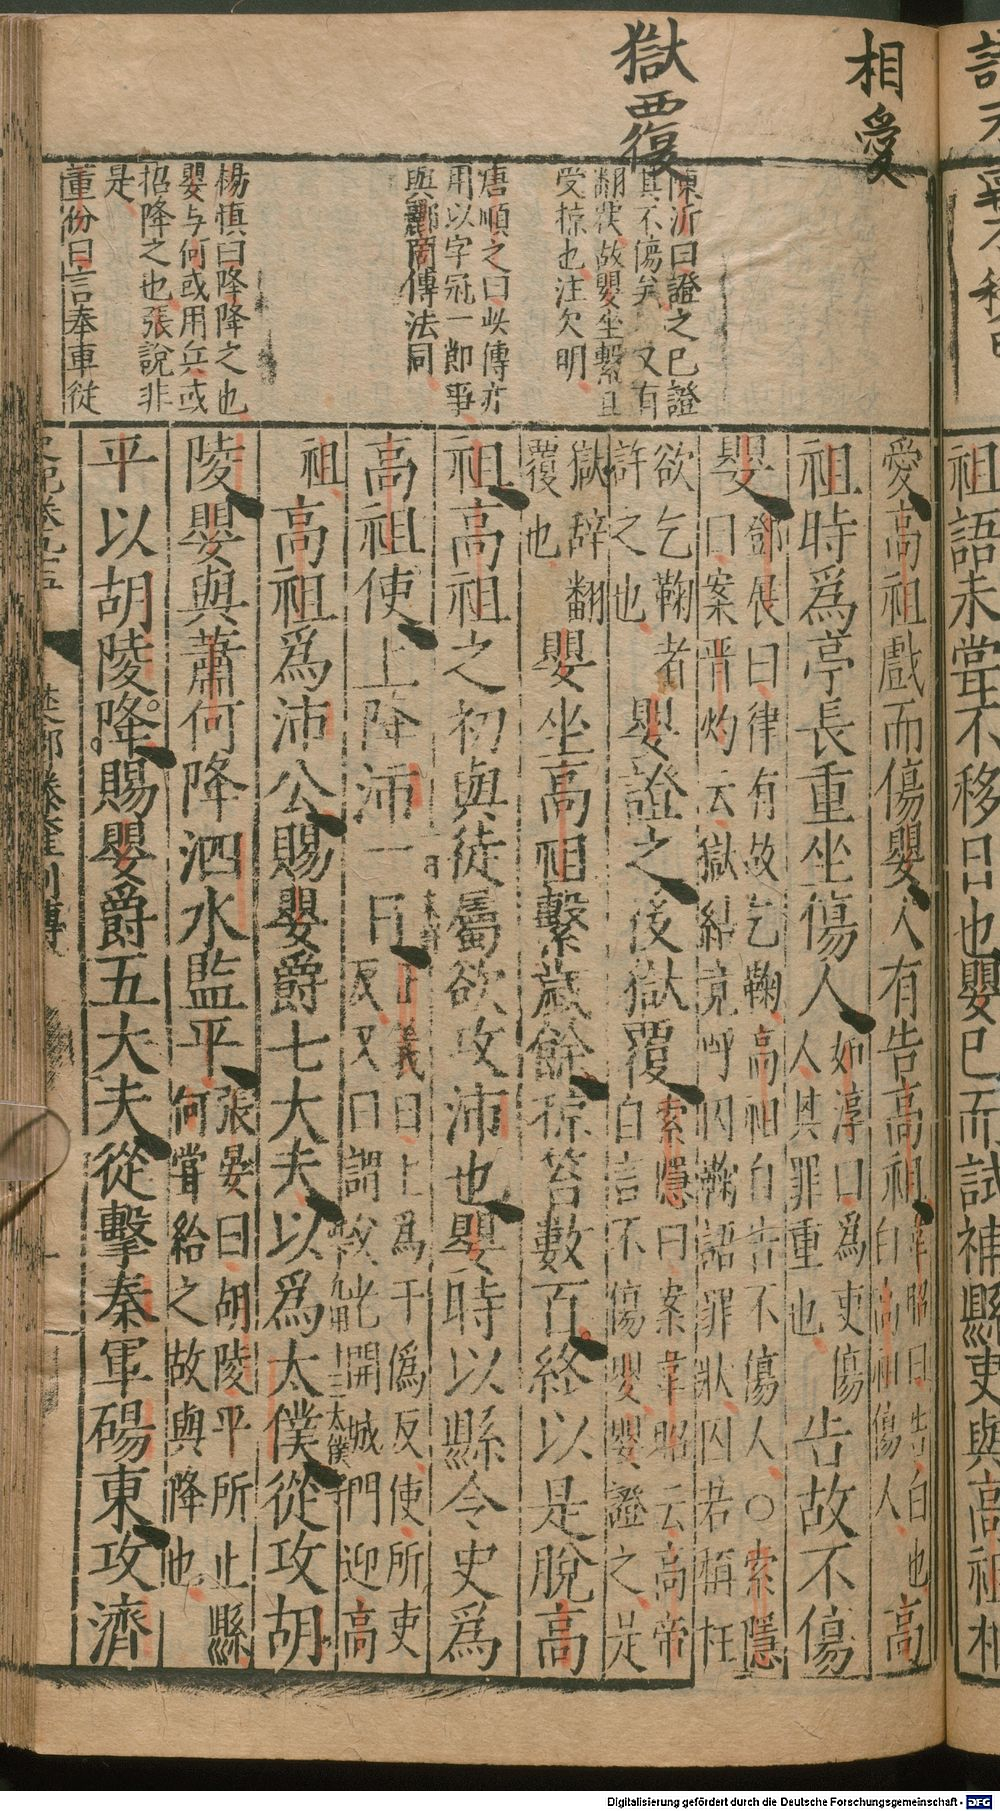 相愛
獄覆
陳沂曰證之已證
其不傷矣 又有
翻獄故嬰坐繫且
受掠也注欠明
唐順之曰此傳亦
用以字冠一節事
與酈商傳法同
楊慎曰降降之也
嬰与何或用兵或
招降之也張說非
是
董份曰言奉車從
祖語未嘗不移日也嬰已而試補縣吏與高祖相
愛高祖戲而傷嬰人有告高祖 韋昭曰告白也
白高祖傷人 高
祖時爲亭長重坐傷人 如淳曰爲吏傷
人其罪重也 告故不傷
嬰 鄧展曰律有故乞鞠高祖自告不傷人○索隱
曰案晋灼云獄結竟呼囚鞠語罪狀囚若稱枉
欲乞鞠者
許之也 嬰證之後獄覆 索隱曰案韋昭云高帝
自言不傷嬰嬰證之是
獄辞翻
覆也 嬰坐高祖繫歲餘掠笞數百終以是脫高
祖高祖之初與徒屬欲攻沛也嬰時以縣令史爲
高祖使上降沛一日 正義曰上爲于僞反使所吏
反又曰謂父老開城門迎高
祖 高祖爲沛公賜嬰爵七大夫以爲太僕從攻胡
陵嬰與蕭何降泗水監平 張晏曰胡陵平所止縣
何嘗給之故與降也
平以胡陵降賜嬰爵五大夫從擊秦軍碭東攻濟
Digitalisierung gefördert durch die Deutsche Forschungsgemeinschaft - DFG